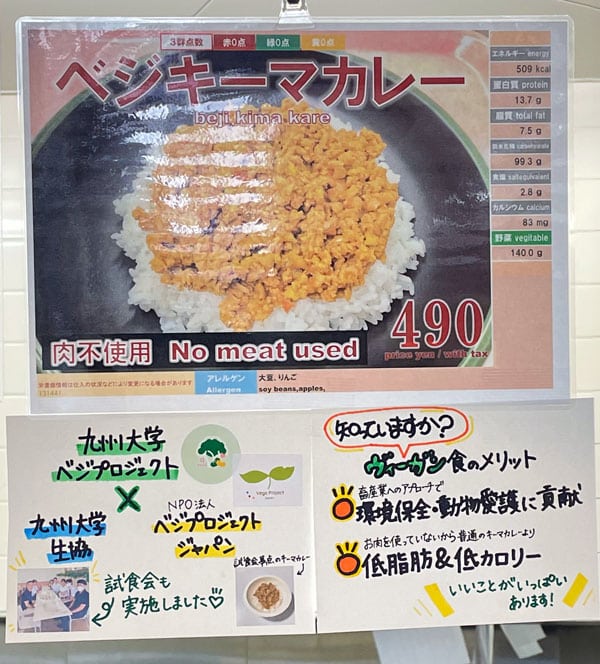 3群点数 赤0点 緑0点 黄0点
ベジキーマカレー
beji,kima,kare
エネルギー energy
509 kcal
蛋白質 protein
13.7 g
脂質 total fat
7.5 g
炭水化物 carbohydrate
99.3 g
食塩 saltequivalent
2.8 g
カルシウム calcium
83 mg
野菜 vegitable
140.0 g
肉不使用 No meat used
490
price yen / with tax
栄養価情報は仕入の状況などにより変更になる場合があります
131441
アレルゲン
Allergen
大豆、りんご
soy beans,apples,
九州大学
ベジプロジェクト
×
九州大学
生協
NPO法人
ベジプロジェクト
ジャパン
Vege Project
試食会も
実施しました♡
試食会時点のキーマカレー
知っていますか?
ヴィーガン食のメリット
畜産業へのアプローチで
環境保全・動物愛護に貢献
お肉を使っていないから普通のキーマカレーより
低脂肪&低カロリー
いいことがいっぱい
あります!